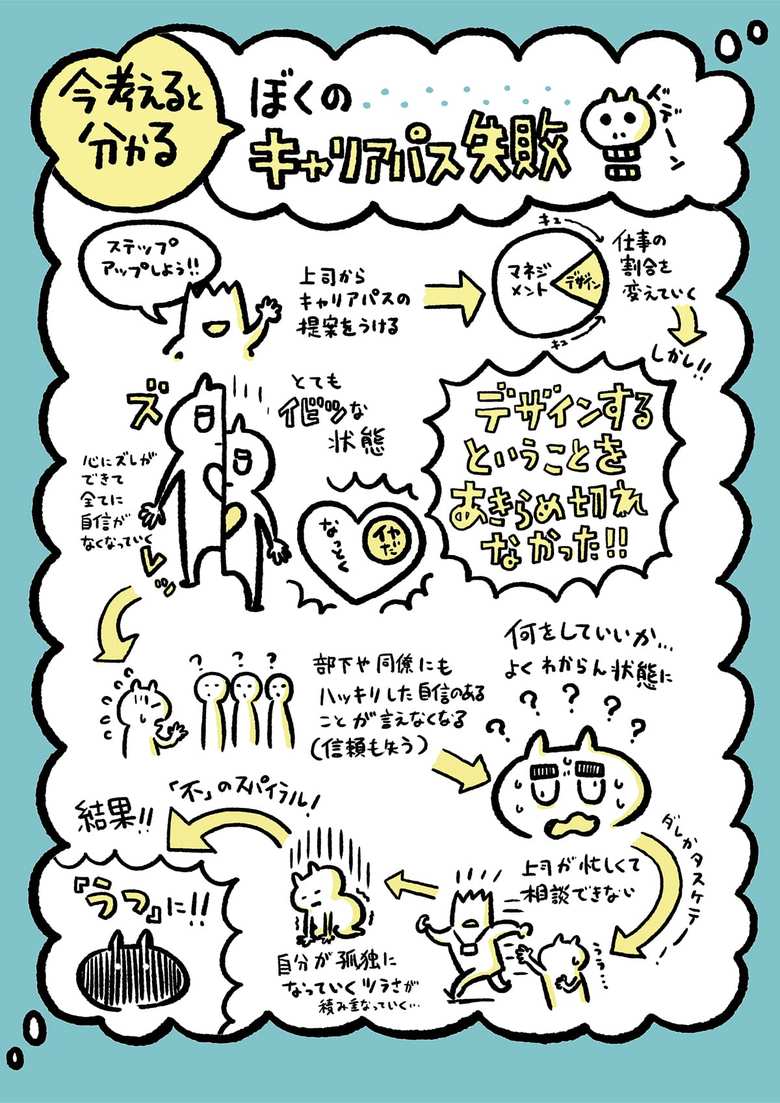 今考えると
分かる
ぼくの
キャリアパス失敗
イデーン
ステップ
アップしよう!!
上司から
キャリアパスの
提案をうける
キュ
マネジ
メント
デザイン
キュ
仕事の
割合を
変えていく
しかし!!
デザインする
ということを
あきらめ切れ
なかった!!
ズ
レッ
とても
イビツな
状態
心にズレが
できて
全てに
自信が
なくなっていく
なっとく
イヤだ
? ? ?
部下や同僚にも
ハッキリした自信のある
ことが言えなくなる
(信頼も失う)
何をしていいか…
よくわからん状態に
? ? ? ? ?
ダレかタスケテー
上司が忙しくて
相談できない
ううう…
自分が孤独に
なっていくツラさが
積み重なっていく…
「不」のスパイラル!
結果!!
『うつ』に!!